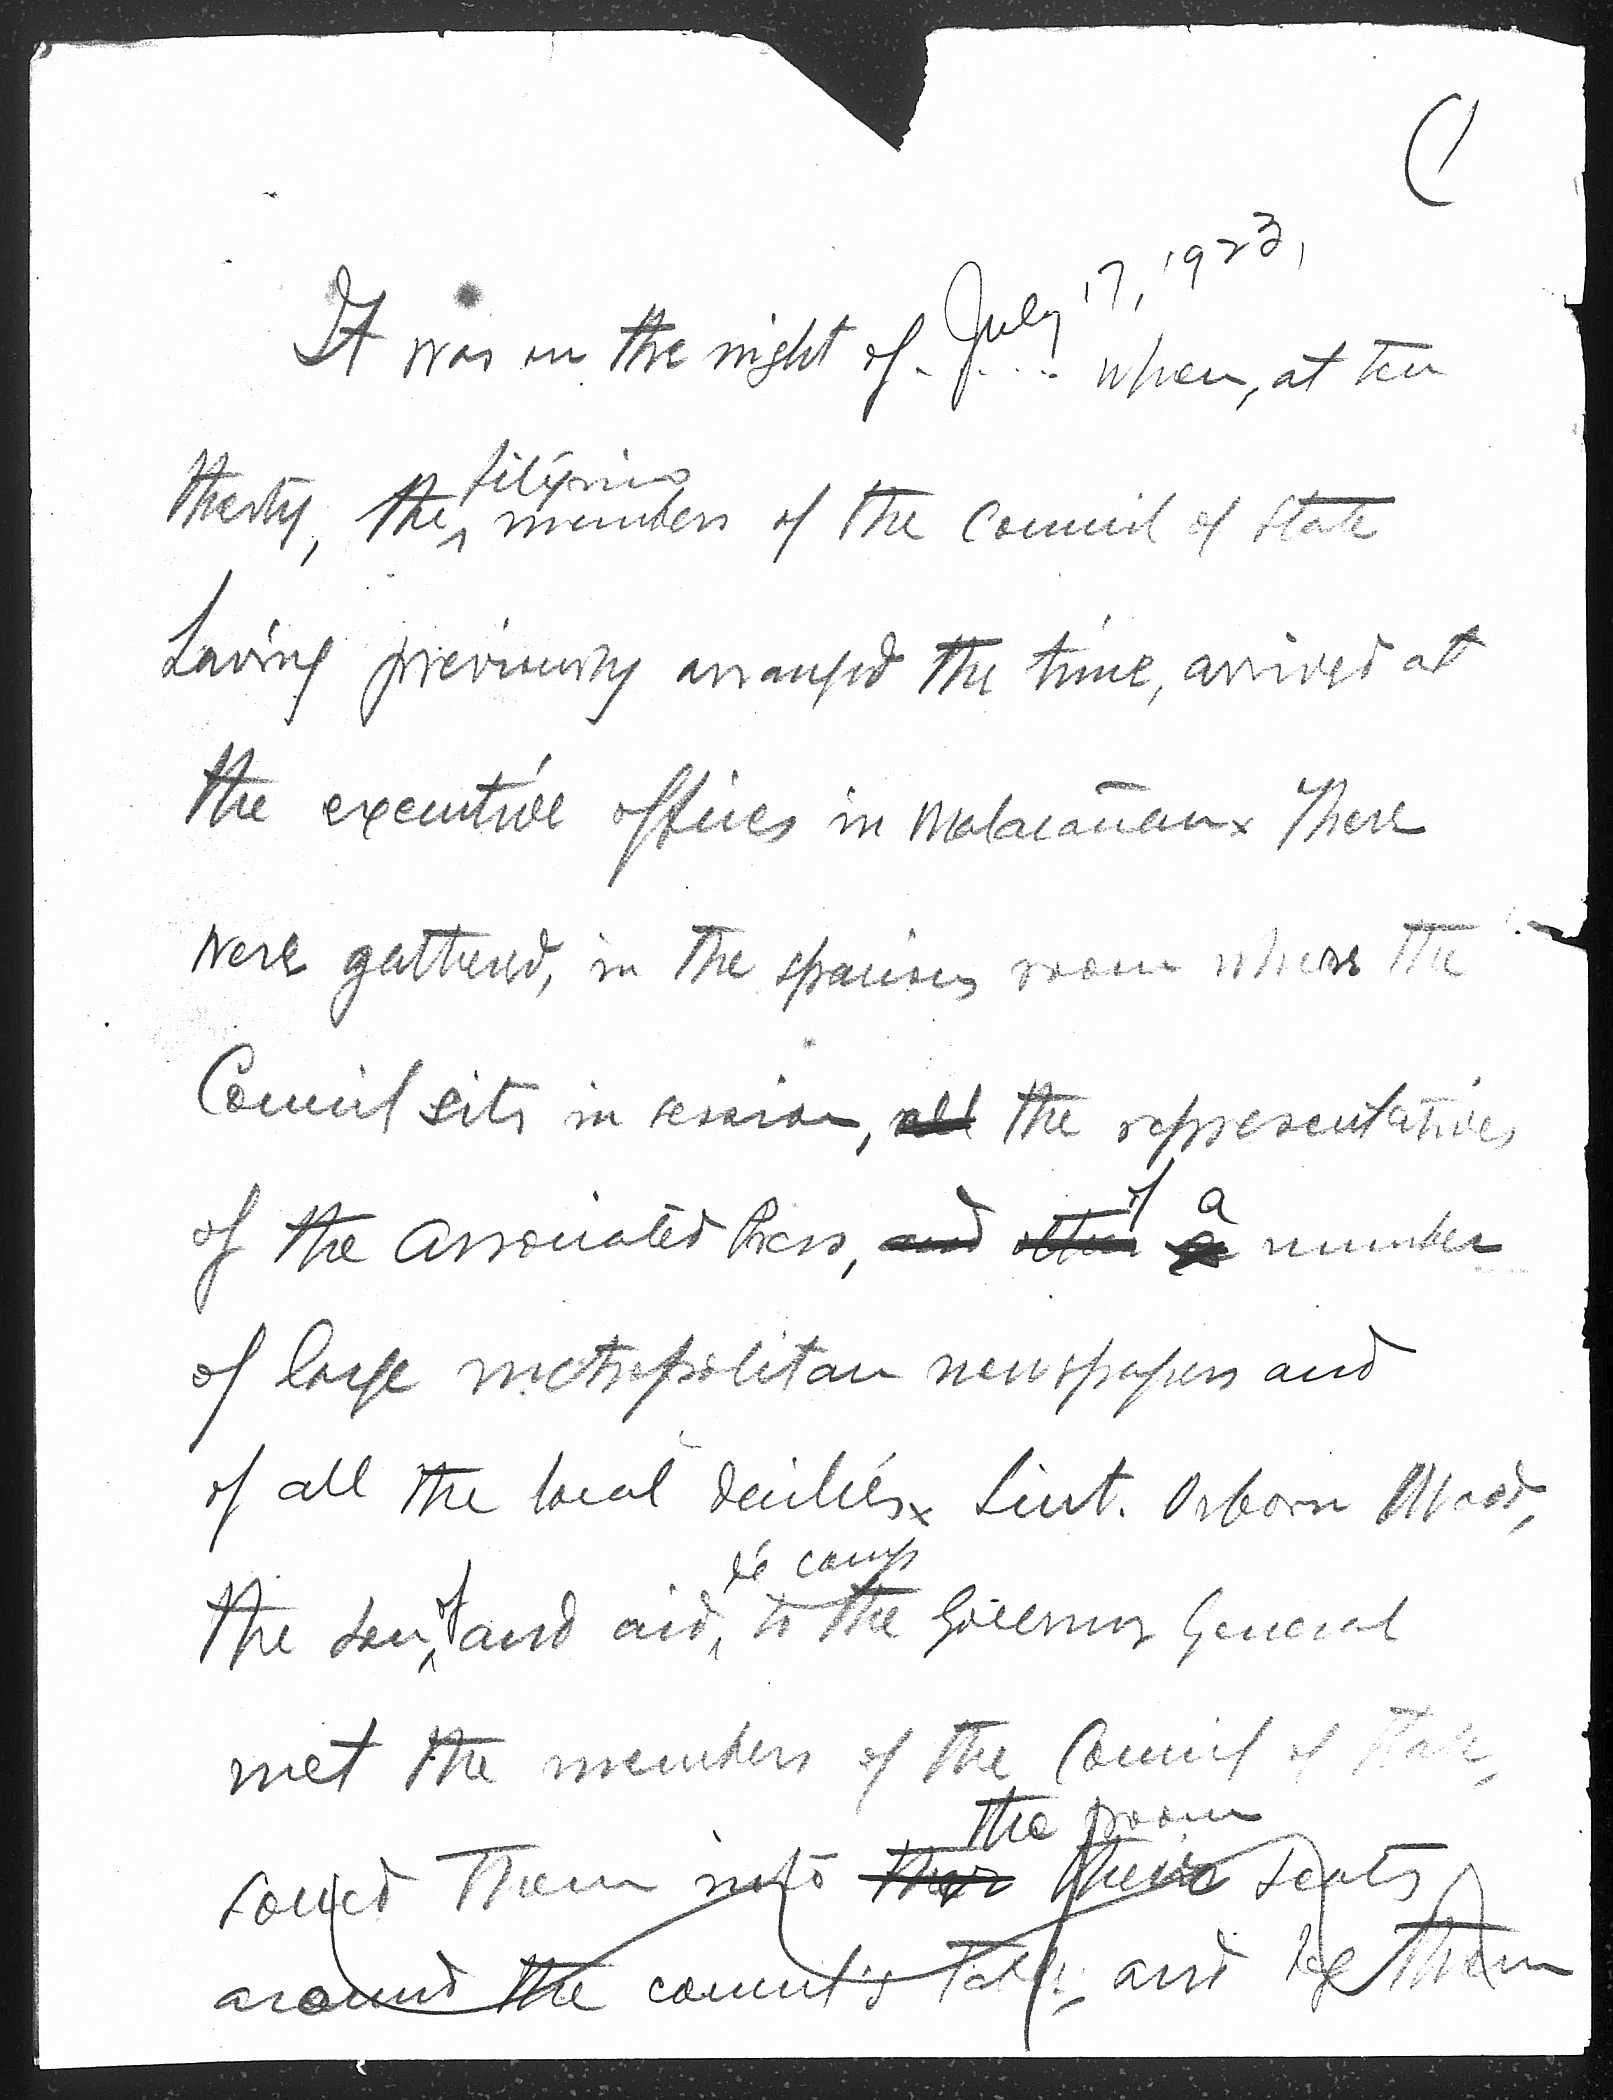 (1
It was on the night of July 17, 1923, when, at ten
thirty, the Filipino members of the Council of State
having previously arranged the time, arrived at
the executive offices in Malacañan x There
were gathered, in the spacious room where the
Council sits in session, all the representatives
of the Associated Press, and other of a number
of large metropolitan newspapers and
of all the local dailies x Lieut. Osborn Wood,
the son, of and aid, de camp to the Governor General
met the members of the Council of State,
the room
into their their seats
around the council's table, and he them